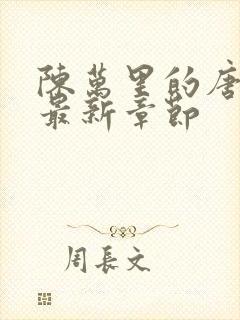 陳萬里的唐
最新章節
周長文